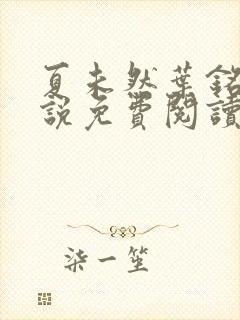 夏未然葉銘
說免費閱讀
柒一笙